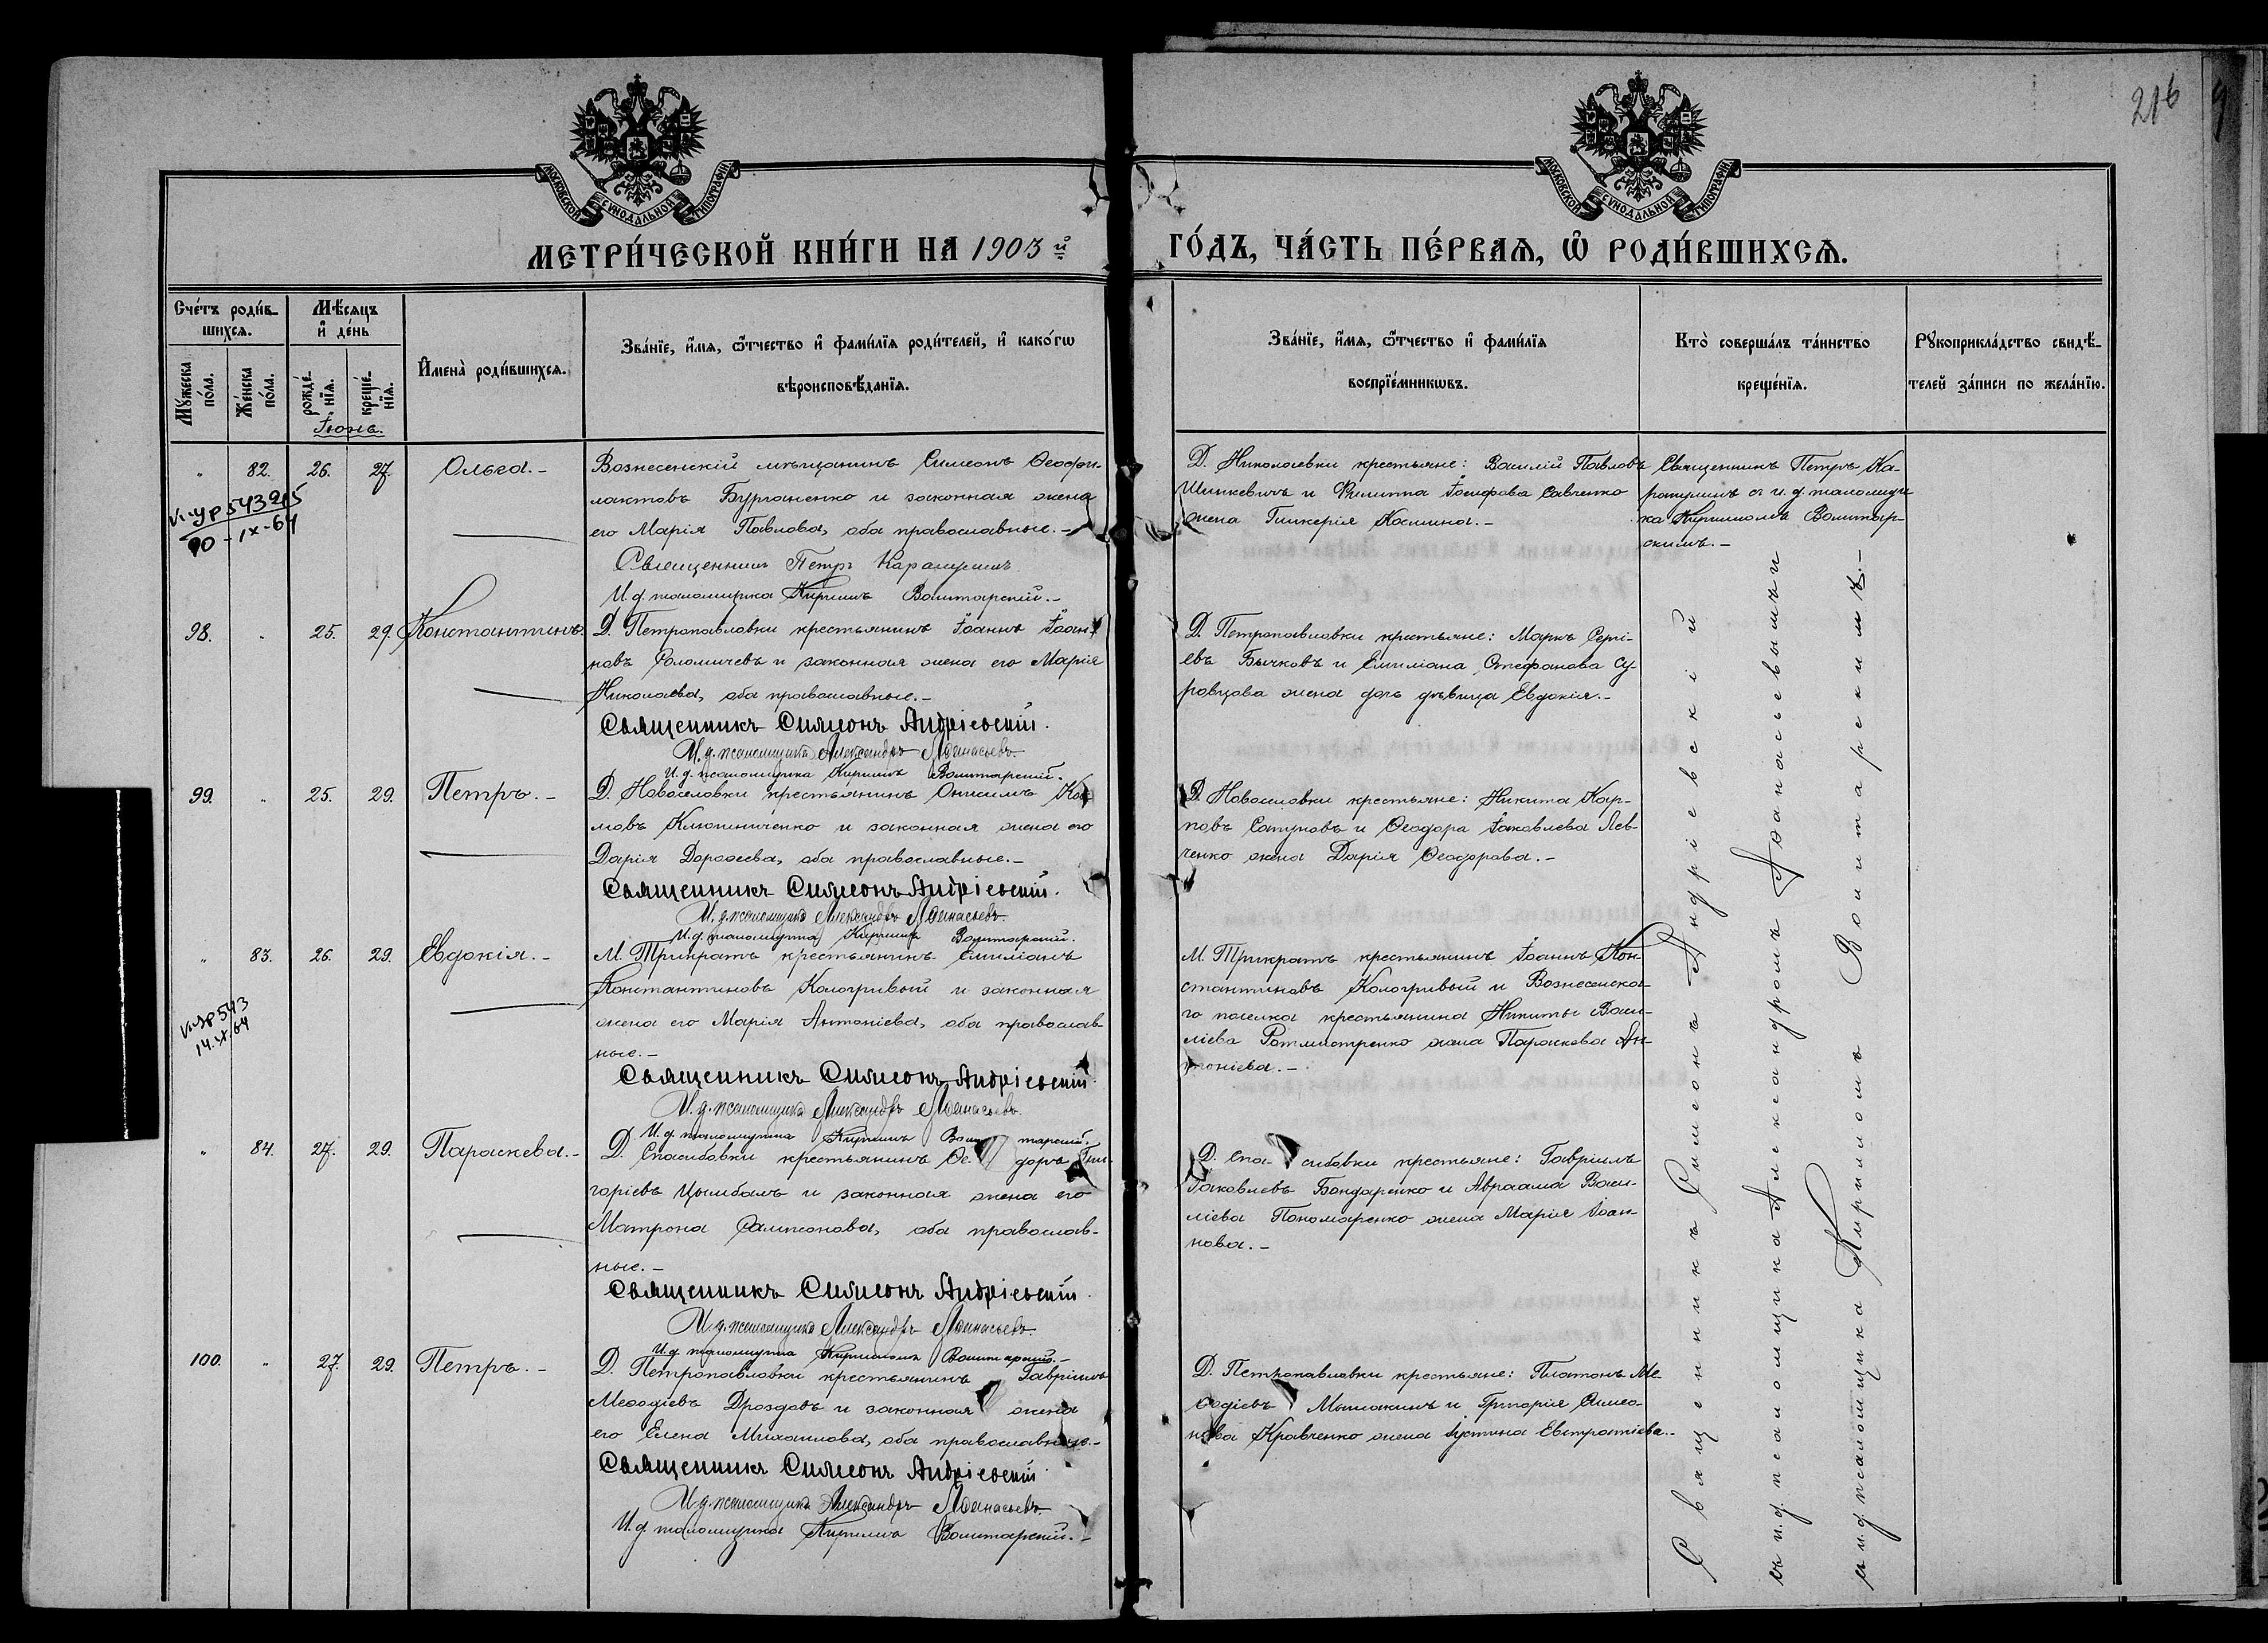 216
МОСКОВСКОЙ СѴНОДАЛЬНОЙ ТИПОГРАФІИ
МОСКОВСКОЙ СѴНОДАЛЬНОЙ ТИПОГРАФІИ
МЕТРИ́ЧЕСКОЙ КНИ́ГИ НА 1903й
ГО́ДЪ, ЧА́СТЬ ПЕ́РВАѦ, Ѿ РОДИ́ВШИХСѦ.
Сче́тъ роди́в-
шихсѧ.
Мѣ́сѧцъ
и҆ де́нь
Мꙋ́жеска по́ла.
Же́нска по́ла.
рожде́-нїѧ.
креще́-нїѧ.
И҆мена̀ роди́вшихсѧ.
Зва́нїе, и҆́мѧ, ѻ҆́тчество и҆ фами́лїѧ роди́телей, и҆ како́гѡ
вѣроисповѣ́данїѧ.
Зва́нїе, и҆́мѧ, ѻ҆́тчество и҆ фами́лїѧ
воспрїе́мникѡвъ.
Кто̀ соверша́лъ та́инство
креще́нїѧ.
Рꙋкоприкла́дство свидѣ́-
телей за́писи по жела́нїю.
Іюнь.
" 82. 26. 27. Ольга.-
Вознесенскій мѣщанинъ Симеонъ Ѳеофи-
лактовъ Бурганенко и законная жена
его Марія Павлова, оба православные.-
Священникъ Петръ
И. д. псаломщика Кириллъ
Д. Николаевки крестьяне: Василій Павловъ
Шинкевичъ и Филиппа Іосифова Савченко
жена Гликерія Космина.-
Священникъ Петръ Ка-
съ и. д. псаломщи-
ка Кирилломъ
скимъ.-
98. " 25. 29. Константинъ.
Д. Петропавловки крестьянинъ Іоаннъ Іоан-
новъ и законная жена его Марія
Николаева, оба православные.-
Священникъ Симеонъ Андріевскій.
И. д. псаломщика Александръ Аѳанасьевъ.
И. д. псаломщика Кириллъ
Д. Петропавловки крестьяне: Маркъ Сергі-
евъ Бычковъ и Емиліана Стефанова Су-
ровцова дочь дѣвица Евдокія.-
99. " 25. 29. Петръ.-
Д. Новоселовки крестьянинъ Онисимъ
Ключниченко и законная жена его
Дарія Дороѳеева, оба православные.-
Священникъ Симеонъ Андріевскій.
И. д. псаломщика Александръ Аѳанасьевъ.
И. д. псаломщика Кириллъ
Д. Новоселовки крестьяне: Никита Кар-
повъ Сатуновъ и Ѳеодора Іаковлева Лев-
ченко жена Дарія Ѳеодорова.-
" 83. 26. 29. Евдокія.-
М. Трикратъ крестьянинъ Емиліанъ
Константиновъ Кологривый и законная
жена его Марія Антоніева, оба православ-
ные.-
Священникъ Симеонъ Андріевскій
И. д. псаломщика Александръ Аѳанасьевъ.
И. д. псаломщика Кириллъ
М. Трикратъ крестьянинъ Іоаннъ Кон-
стантиновъ Кологривый и Вознесенска-
го поселка крестьянина Никиты Васи-
ліева Ротмистренко жена Параскева Ан-
тоніева.-
" 84. 27. 29. Параскева.-
Д. Спасибовки крестьянинъ Ѳеодоръ Гри-
горіевъ Цымбалъ и законная жена его
Матрона Сампсонова, оба православ-
ные.-
Священникъ Симеонъ Андріевскій.
И. д. псаломщика Александръ Аѳанасьевъ.
И. д. псаломщика
Д. Спасибовки крестьяне: Гавріилъ
Іаковлевъ Бондаренко и Авраама Васи-
ліева Пономаренко жена Марія Іоан-
нова.-
100. " 27. 29. Петръ.-
Д. Петропавловки крестьянинъ Гавріилъ
Меѳодіевъ Дроздовъ и законная жена
его Елена Михаилова, оба православные.-
Священникъ Симеонъ Андріевскій.
И. д. псаломщика Александръ Аѳанасьевъ.
И. д. псаломщика Кириллъ
Д. Петропавловки крестьяне: Платонъ Ме-
ѳодіевъ и Григорія Симео-
нова Кравченко жена Іустина Евстратіева.-
Священникъ Симеонъ Андріевскій
съ и. д. псаломщика Александромъ Аѳанасьевымъ и
съ и. д. псаломщика Кирилломъ